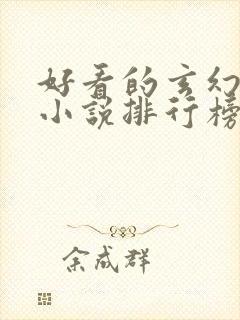 好看的玄幻
小说排行榜
余成群